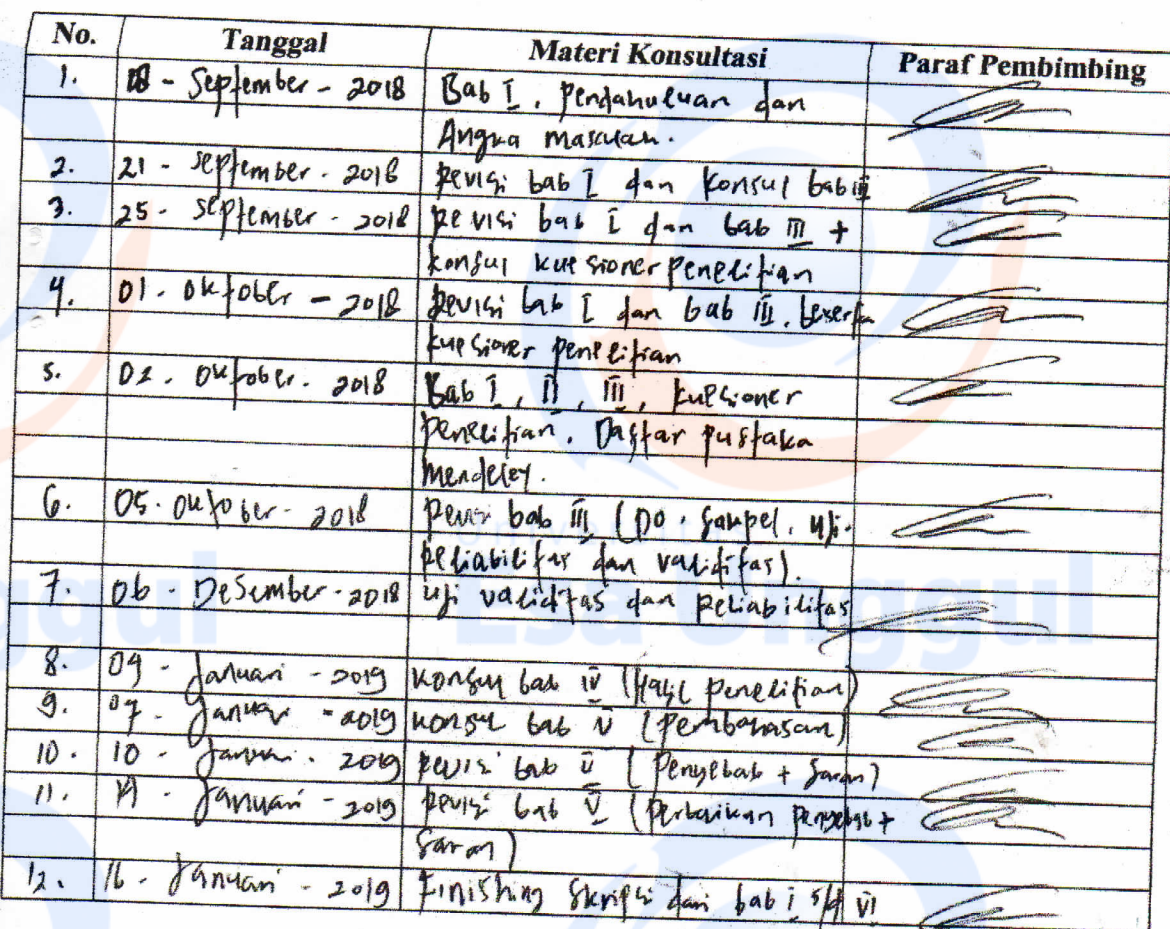 No. Tanggal Materi Konsultasi Paraf Pembimbing
1. 18 - September - 2018 Bab I. Pendahuluan dan
Angka masalah.
2. 21 - September - 2018 Revisi bab I dan konsul bab III
3. 25 - September - 2018 Revisi bab I dan bab III +
konsul kuesioner penelitian
4. 01 - Oktober - 2018 Revisi bab I dan bab III, beserta
kuesioner penelitian
5. 02 - Oktober - 2018 Bab I, II, III, kuesioner
penelitian, Daftar pustaka
Mendeley.
6. 05 - Oktober - 2018 Revisi bab III (DO, Sampel, uji-
reliabilitas dan validitas).
7. 06 - Desember - 2018 uji validitas dan Reliabilitas
8. 04 - Januari - 2019 Konsul bab IV (Hasil penelitian)
9. 07 - Januari - 2019 Konsul bab V (Pembahasan)
10. 10 - Januari - 2019 Revisi bab V (Penyebab + Saran)
11. 14 - Januari - 2019 Revisi bab V (Perbaikan Penyebab +
Saran)
12. 16 - Januari - 2019 Finishing Skripsi dari bab I s/d VI
Universitas
Esa Unggul
ggul